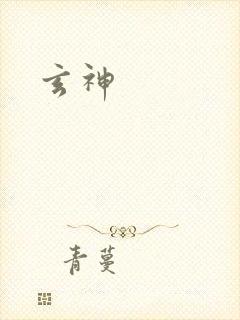 玄神
青蔓